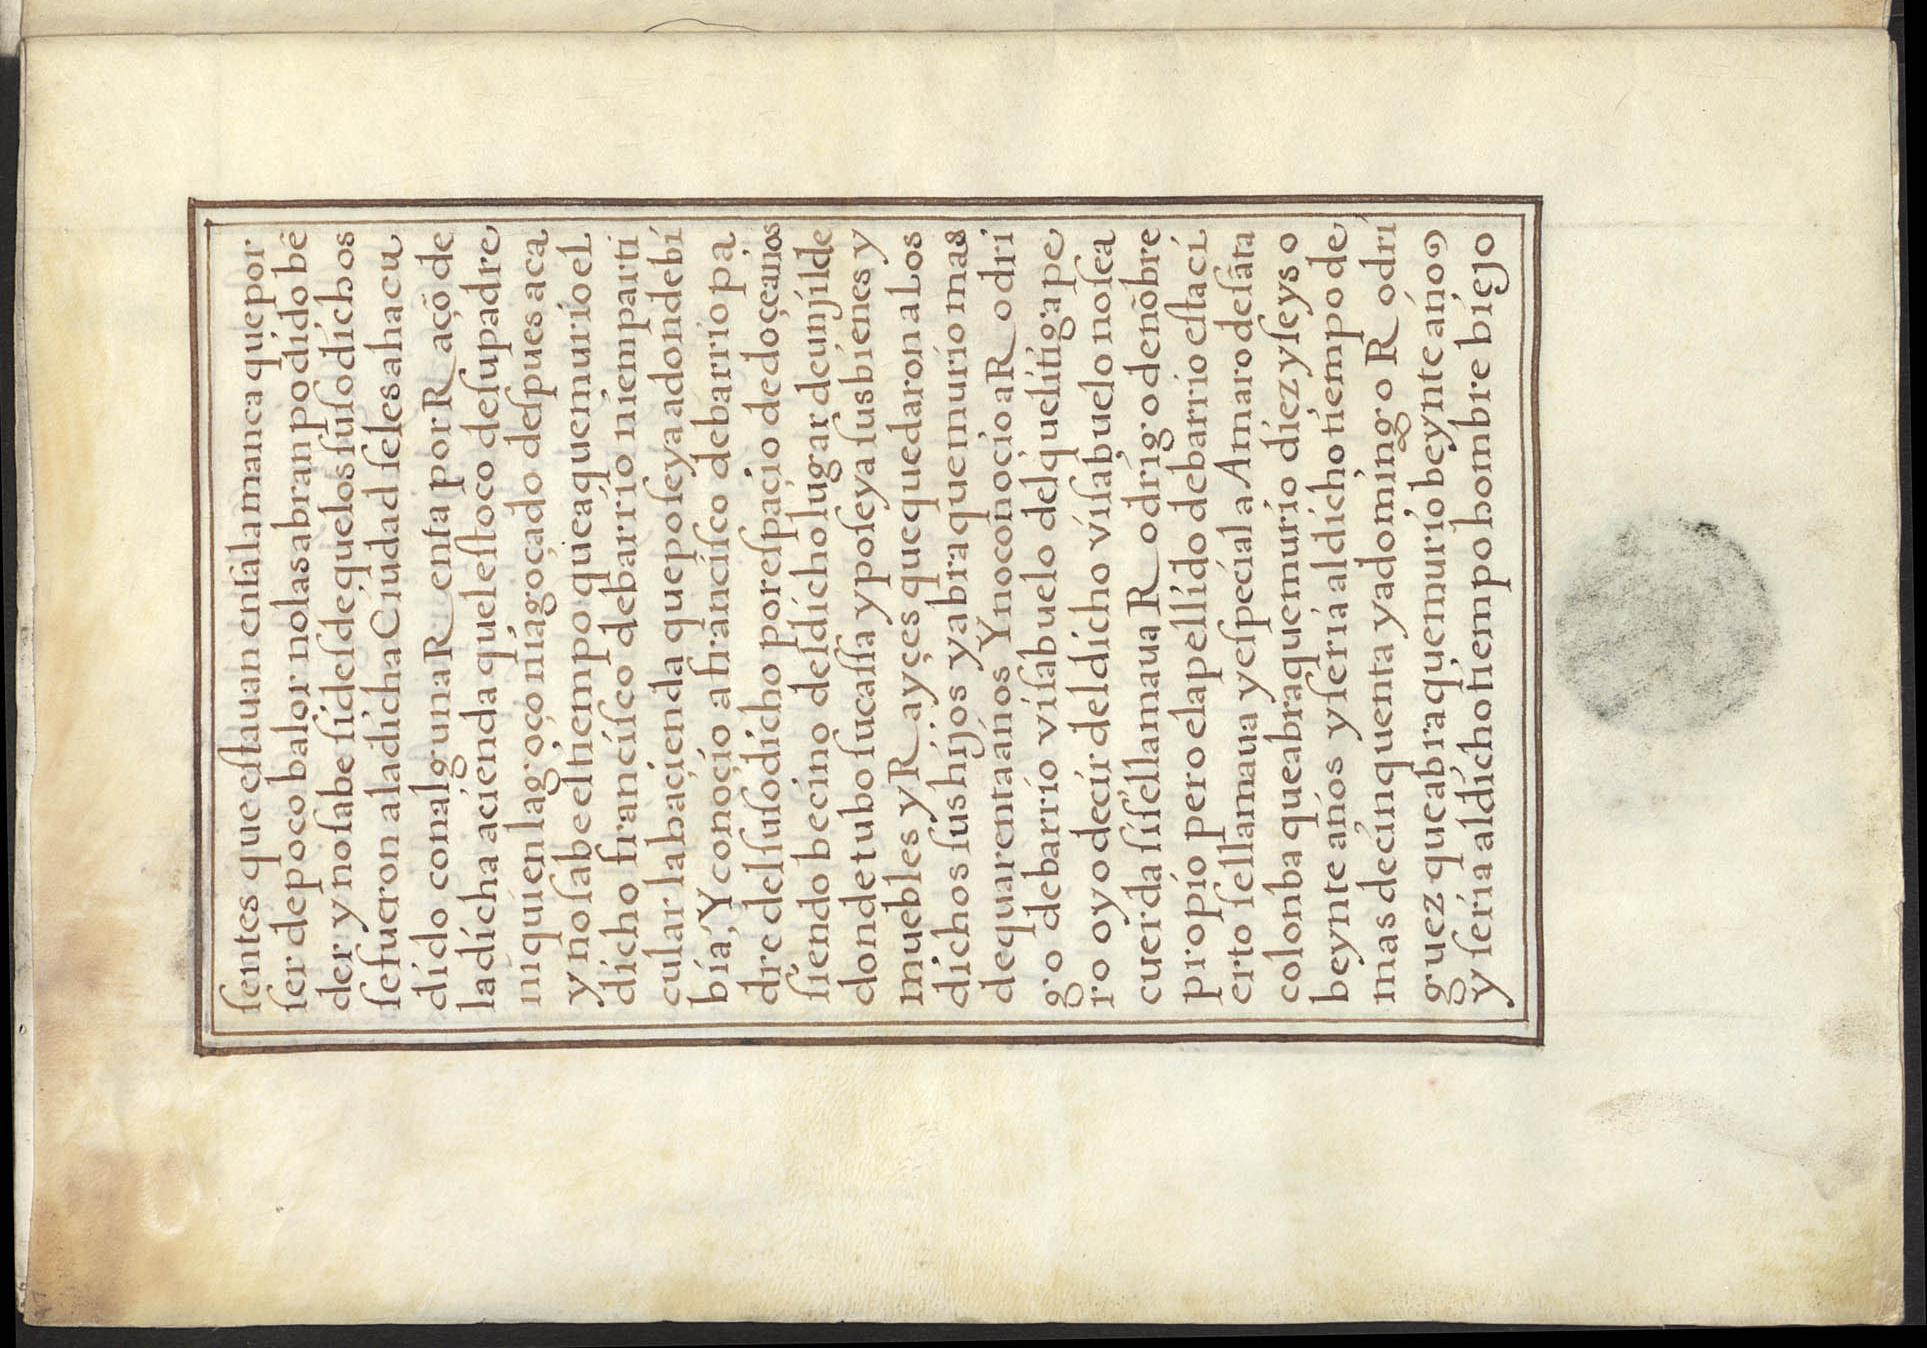 ſentes que eſtauan en ſalamanca que por
ſer de poco balor no las abran podido bē
der y no ſabe ſi deſde que los ſuſo dichos
ſe fueron a la dicha Ciudad ſe les a hacu
dido con alguna Renta por Raçō de
la dicha acienda que le ſtoco de ſu padre
ni quien la goço ni a goçado deſpues aca
y no ſabe el tiempo que a que murio eL
dicho franciſco de barrio ni en parti
cular la haçienda que poſeya adonde bi
bia, Y conoçio a franciſco de barrio pa
dre del ſuſo dicho por eſpaçio de doçe anos
ſiendo becino del dicho lugar de unjilde
donde tubo ſu caſſa y poſeya ſus bienes y
muebles y Rayçes que quedaron a Los
dichos ſus hijos y abra que murio mas
de quarenta años Y no conoçio a Rodri
go de barrio viſabuelo del que litiga pe
ro oyo decir del dicho viſabuelo no ſea
cuerda ſi ſe llamaua Rodrigo de nōbre
propio pero el apellido de barrio eſta ci
erto ſe llamaua y eſpecial a Amaro de ſāta
colonba que abra que murio diez y ſeys o
beynte años y ſeria al dicho tiempo de
mas de cinquenta y a domingo Rodri
guez que abra que murio beynte años
y ſeria al dicho tiempo hombre biejo